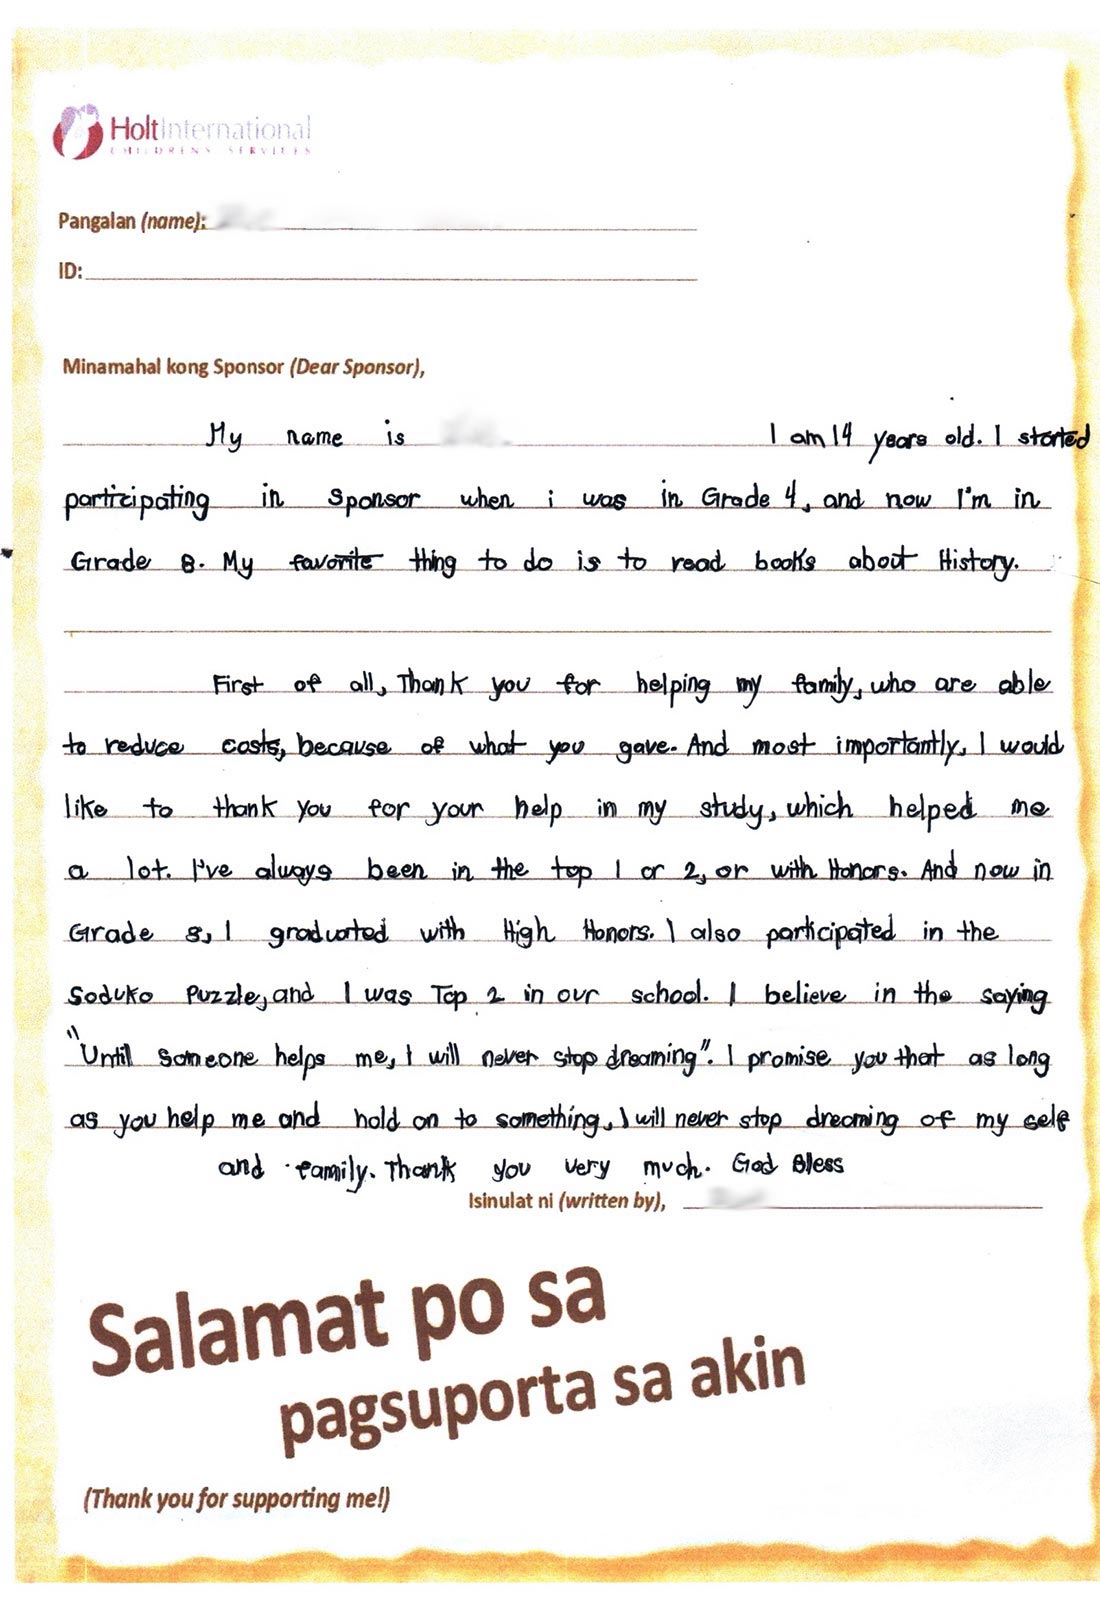 HoltInternational
CHILDREN'S SERVICES
Pangalan (name):
ID:
Minamahal kong Sponsor (Dear Sponsor),
My name is I am 14 years old. I started
participating in Sponsor when i was in Grade 4, and now I'm in
Grade 8. My favorite thing to do is to read books about History.
First of all, Thank you for helping my family, who are able
to reduce costs, because of what you gave. And most importantly, I would
like to thank you for your help in my study, which helped me
a lot. I've always been in the top 1 or 2, or with Honors. And now in
Grade 8, I graduated with High Honors. I also participated in the
Soduko Puzzle, and I was Top 2 in our school. I believe in the saying
"Until someone helps me, I will never stop dreaming". I promise you that as long
as you help me and hold on to something, I will never stop dreaming of my self
and family. Thank you very much. God Bless
Isinulat ni (written by),
Salamat po sa
pagsuporta sa akin
(Thank you for supporting me!)